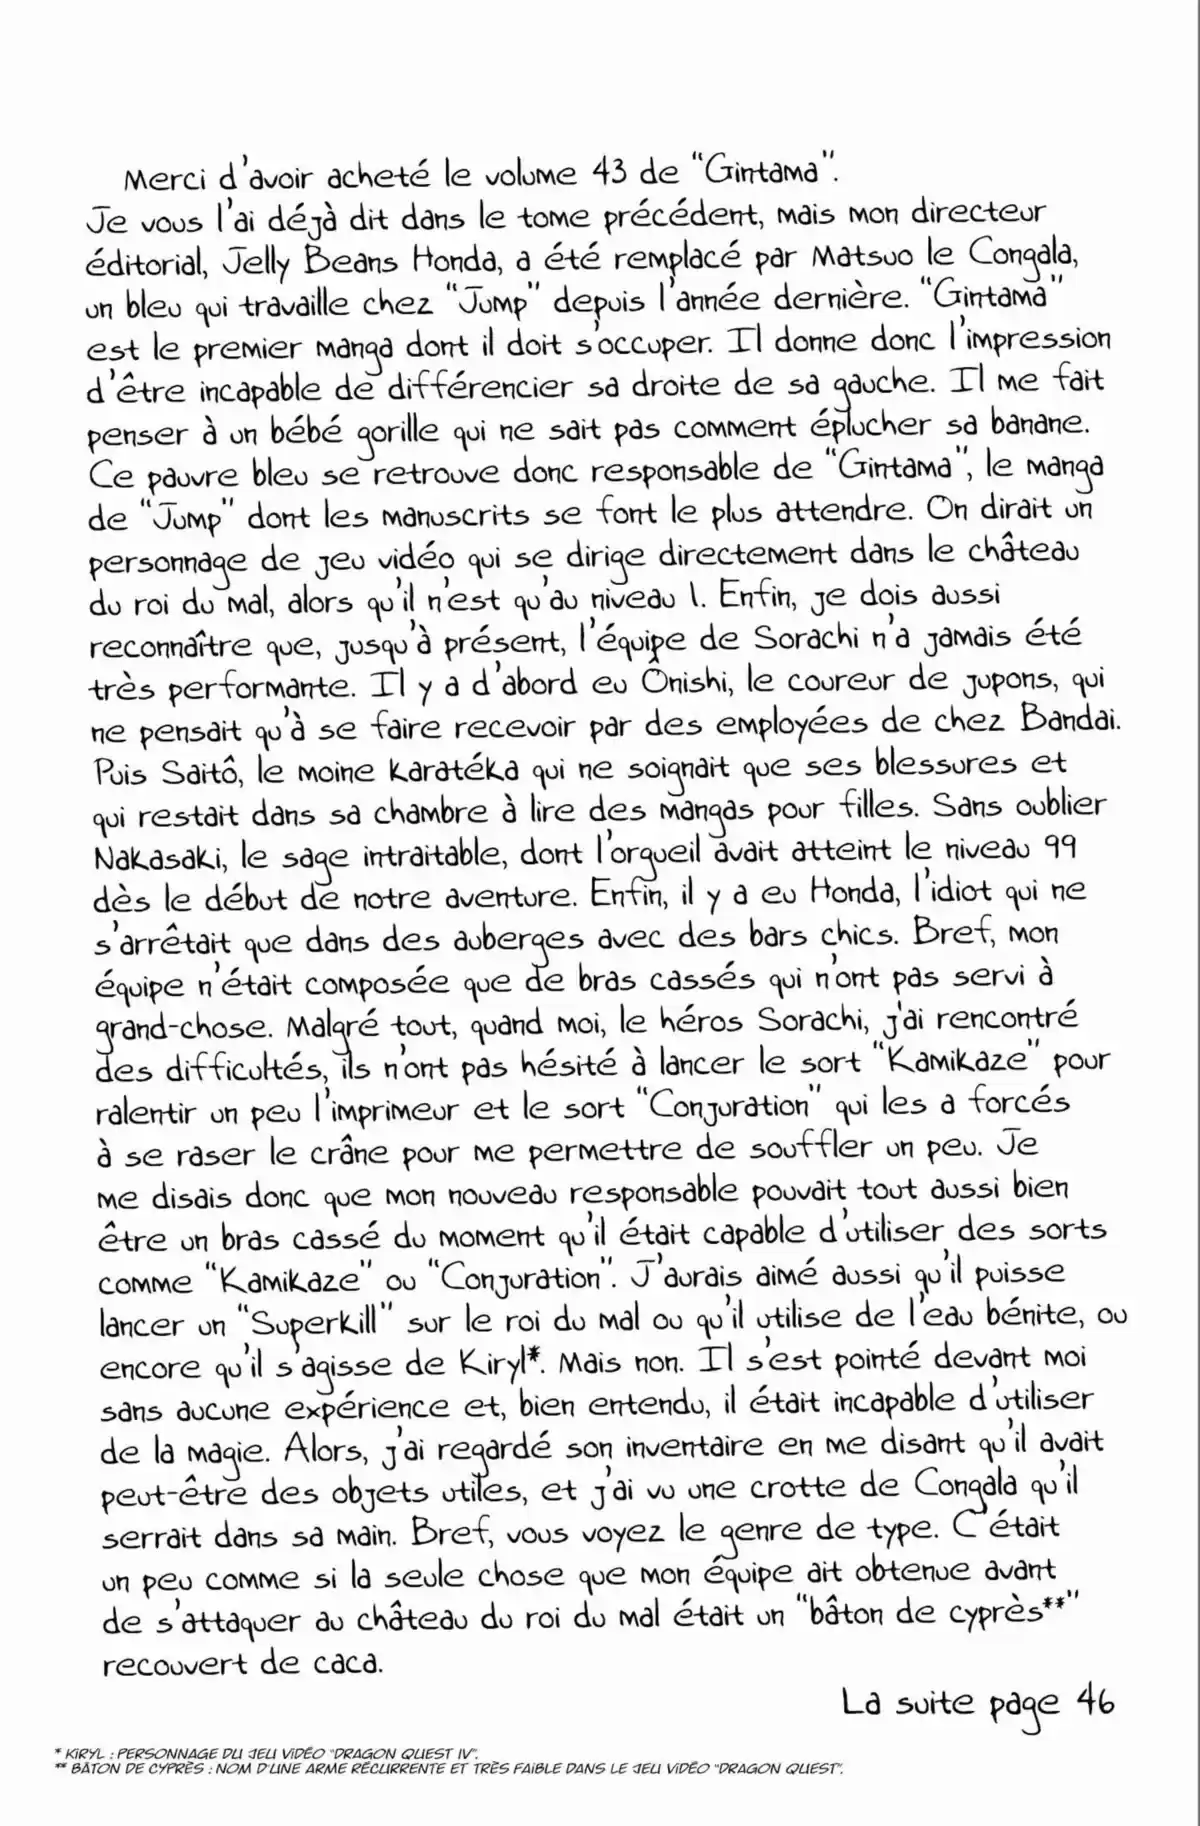 Merci d'avoir acheté le volume 43 de "Gintama".
Je vous l'ai déjà dit dans le tome précédent, mais mon directeur
éditorial, Jelly Beans Honda, a été remplacé par Matsuo le Congala,
un bleu qui travaille chez "Jump" depuis l'année dernière. "Gintama"
est le premier manga dont il doit s'occuper. Il donne donc l'impression
d'être incapable de différencier sa droite de sa gauche. Il me fait
penser à un bébé gorille qui ne sait pas comment éplucher sa banane.
Ce pauvre bleu se retrouve donc responsable de "Gintama", le manga
de "Jump" dont les manuscrits se font le plus attendre. On dirait un
personnage de jeu vidéo qui se dirige directement dans le château
du roi du mal, alors qu'il n'est qu'au niveau 1. Enfin, je dois aussi
reconnaître que, jusqu'à présent, l'équipe de Sorachi n'a jamais été
très performante. Il y a d'abord eu Ônishi, le coureur de jupons, qui
ne pensait qu'à se faire recevoir par des employées de chez Bandai.
Puis Saitô, le moine karatéka qui ne soignait que ses blessures et
qui restait dans sa chambre à lire des mangas pour filles. Sans oublier
Nakasaki, le sage intraitable, dont l'orgueil avait atteint le niveau 99
dès le début de notre aventure. Enfin, il y a eu Honda, l'idiot qui ne
s'arrêtait que dans des auberges avec des bars chics. Bref, mon
équipe n'était composée que de bras cassés qui n'ont pas servi à
grand-chose. Malgré tout, quand moi, le héros Sorachi, j'ai rencontré
des difficultés, ils n'ont pas hésité à lancer le sort "Kamikaze" pour
ralentir un peu l'imprimeur et le sort "Conjuration" qui les a forcés
à se raser le crâne pour me permettre de souffler un peu. Je
me disais donc que mon nouveau responsable pouvait tout aussi bien
être un bras cassé du moment qu'il était capable d'utiliser des sorts
comme "Kamikaze" ou "Conjuration". J'aurais aimé aussi qu'il puisse
lancer un "Superkill" sur le roi du mal ou qu'il utilise de l'eau bénite, ou
encore qu'il s'agisse de Kiryl*. Mais non. Il s'est pointé devant moi
sans aucune expérience et, bien entendu, il était incapable d'utiliser
de la magie. Alors, j'ai regardé son inventaire en me disant qu'il avait
peut-être des objets utiles, et j'ai vu une crotte de Congala qu'il
serrait dans sa main. Bref, vous voyez le genre de type. C'était
un peu comme si la seule chose que mon équipe ait obtenue avant
de s'attaquer au château du roi du mal était un "bâton de cyprès**"
recouvert de caca.
La suite page 46
* KIRYL : PERSONNAGE DU JEU VIDÉO "DRAGON QUEST IV".
** BÂTON DE CYPRÈS : NOM D'UNE ARME RÉCURRENTE ET TRÈS FAIBLE DANS LE JEU VIDÉO "DRAGON QUEST".